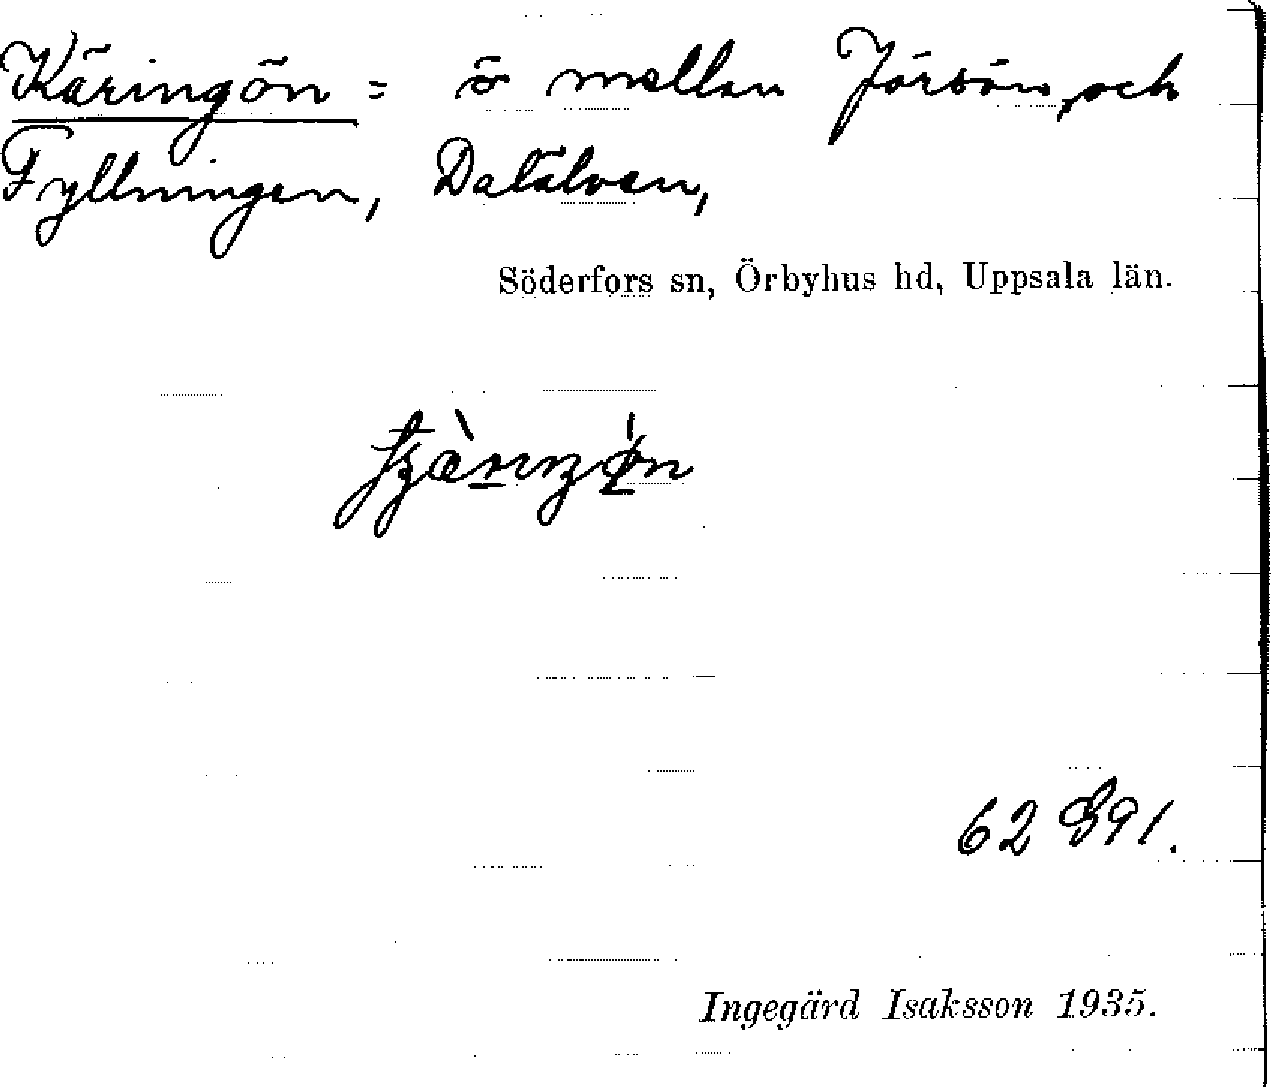 Käringön = ö mellan Jörsön, och
Fyllningen, Dalälven,
Söderfors sn, Örbyhus hd, Uppsala län.
62 891.
Ingegärd Isaksson 1935.